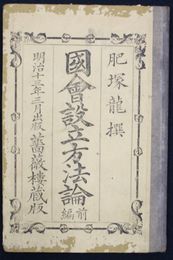 肥塚龍撰
國會設立方法論 前編
明治十三年三月出版 薔薇樓蔵版